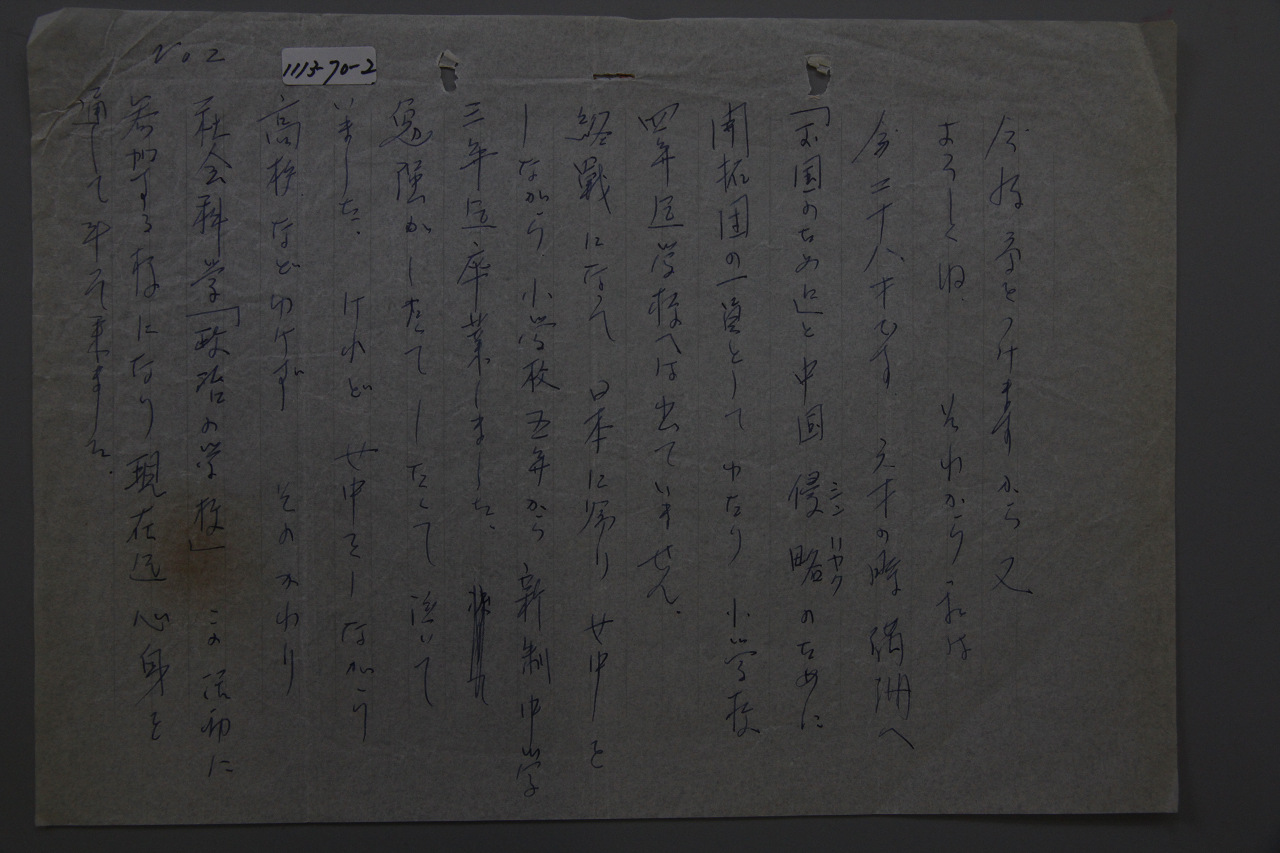 No 2
1113-70-2
今後 気をつけますから 又
よろしくね、 それから 私は
今 二十八才です 六才の時 満州へ
「お国のためにと 中国 侵略のために
シン リヤク
開拓団の一員として わたり 小学校
四年迄学校へは出ていません。
終戦になって 日本に帰り 女中を
しながら 小学校五年から 新制中学
三年迄卒業しました。
勉強がしたくて したくて 泣いて
いました、 けれど 女中をしながら
高校などゆけず そのかわり
社会科学「政治の学校」 この活動に
参加する様になり 現在迄 心身を
通して 斗って来ました。